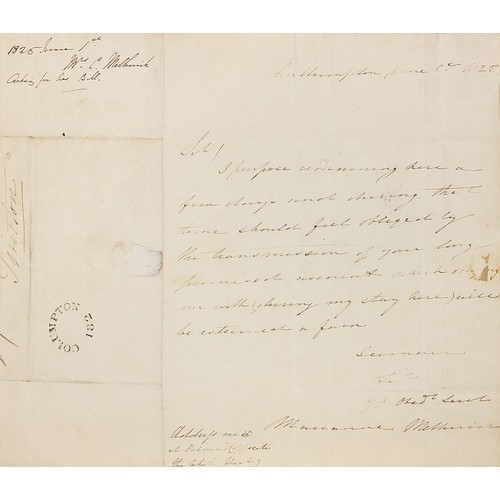 1825 June 1st
Mrs. C. Melhuish
Asking for his Bill.
Cullumpton June 1st 1825
Sir/
I purpose remaining here a
few days and during that
time should feel obliged by
the transmission of your long
promised account which
me with (during my stay here) will
be esteemed a favor
I remain
Sir
yr Obedt Servt
Marianne Melhuish
Address me
at opposite
the White Hart
Tiverton
COLUMPTON
182